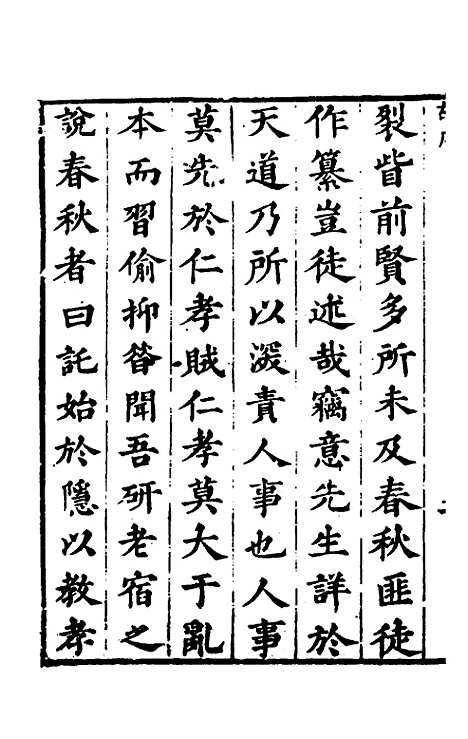 裂眥前賢多所未及春秋匪徒
作纂豈徒述哉竊意先生詳於
天道乃所以深責人事也人事
莫先於仁孝賊仁孝莫大于亂
本而習偷抑昝聞吾研老宿之
說春秋者曰託始於隱以教孝